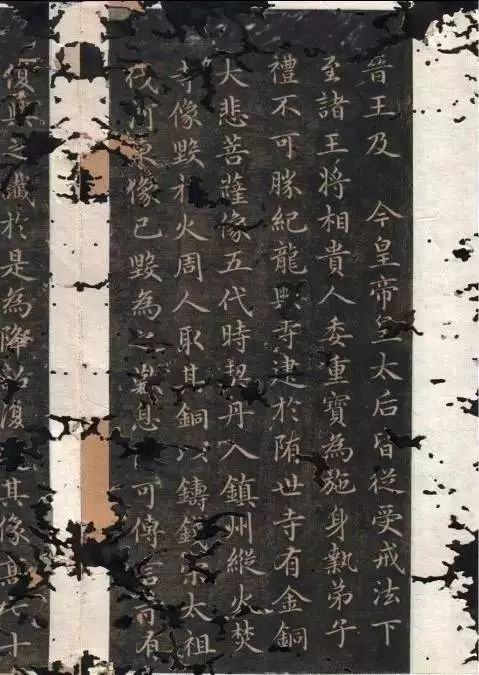 晉王及　今皇帝皇太后皆從受戒法下
至諸王將相貴人委重寶為施身執弟子
禮不可勝紀龍興寺建於隋世寺有金銅
大悲菩薩像五代時契丹入鎮州縱火焚
寺像毀於火周人取其銅以鑄錢宋太祖
伐河東像已毀為之嘆息僧可傳言寺有
復興之讖於是為降詔復造其像高七十